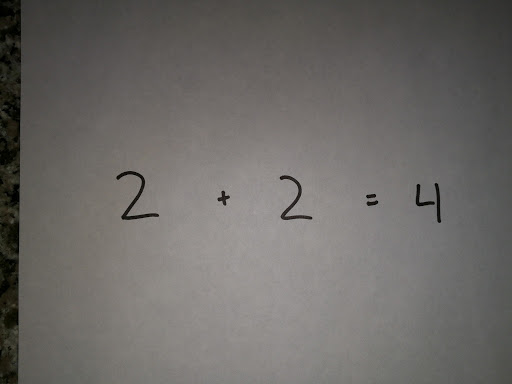 2 + 2 = 4